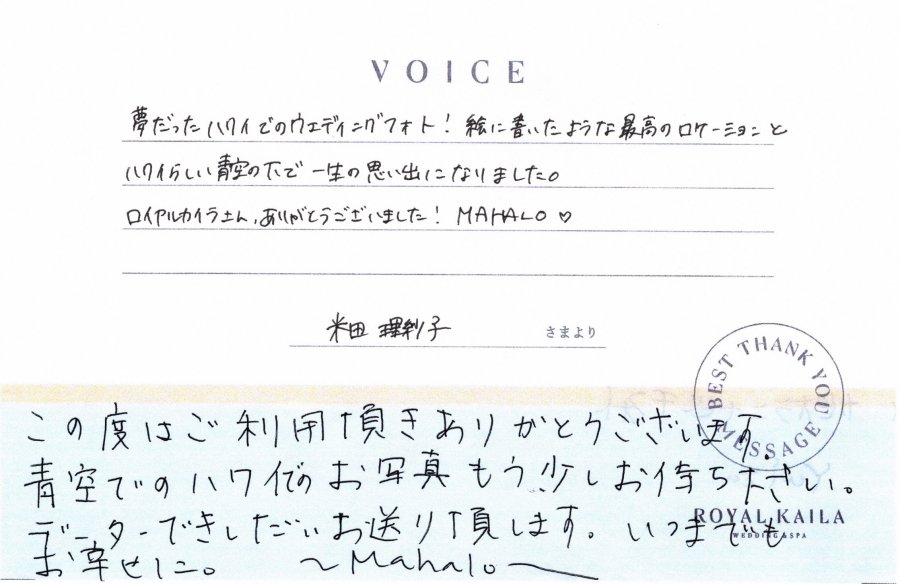 VOICE
夢だったハワイでのウェディングフォト！絵に書いたような最高のロケーションと
ハワイらしい青空の下で一生の思い出になりました。
ロイヤルカイラさん、ありがとうございました！ MAHALO♡
米田 理利子 さまより
BEST THANK YOU MESSAGE
この度はご利用頂きありがとうございます。
青空でのハワイでのお写真もう少しお待ち下さい。
データーできしだいお送り頂します。いつまでも
お幸せに。 ～Mahalo～
ROYAL KAILA
WEDDING & SPA